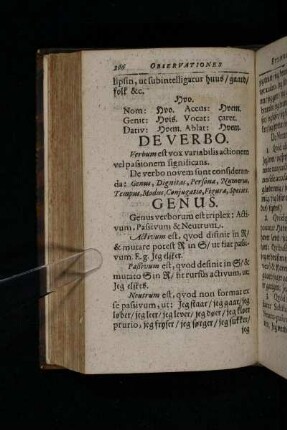 206 OBSERVATIONES
lipsin, ut subintelligatur huus/ gaard/
folk &c.
Hvo.
Nom: Hvo. Accus: Hvem.
Genit: Hvis. Vocat: caret.
Dativ: Hvem. Ablat: Hvem.
DE VERBO.
Verbum est vox variabilis actionem
vel passionem significans.
De verbo novem sunt consideran-
da: Genus, Dignitas, Persona, Numerus,
Tempus, Modus, Conjugatio, Figura, Species.
GENUS.
Genus verborum est triplex: Acti-
vum, Passivum & Neutrum.
Activum est, quod desinit in R/
& mutare potest R in S/ ut fiat passi-
vum. E.g. Jeg elsker.
Passivum est, quod desinit in S/ &
mutato S in R/ fit rursus activum, ut:
Jeg elskes.
Neutrum est, quod non format ex
se passivum, ut: Jeg staar/ jeg gaar/ jeg
løber/ jeg leer/ jeg lever/ jeg døer/ jeg kløer
prurio, jeg fryser/ jeg sørger/ jeg sukker/
jeg